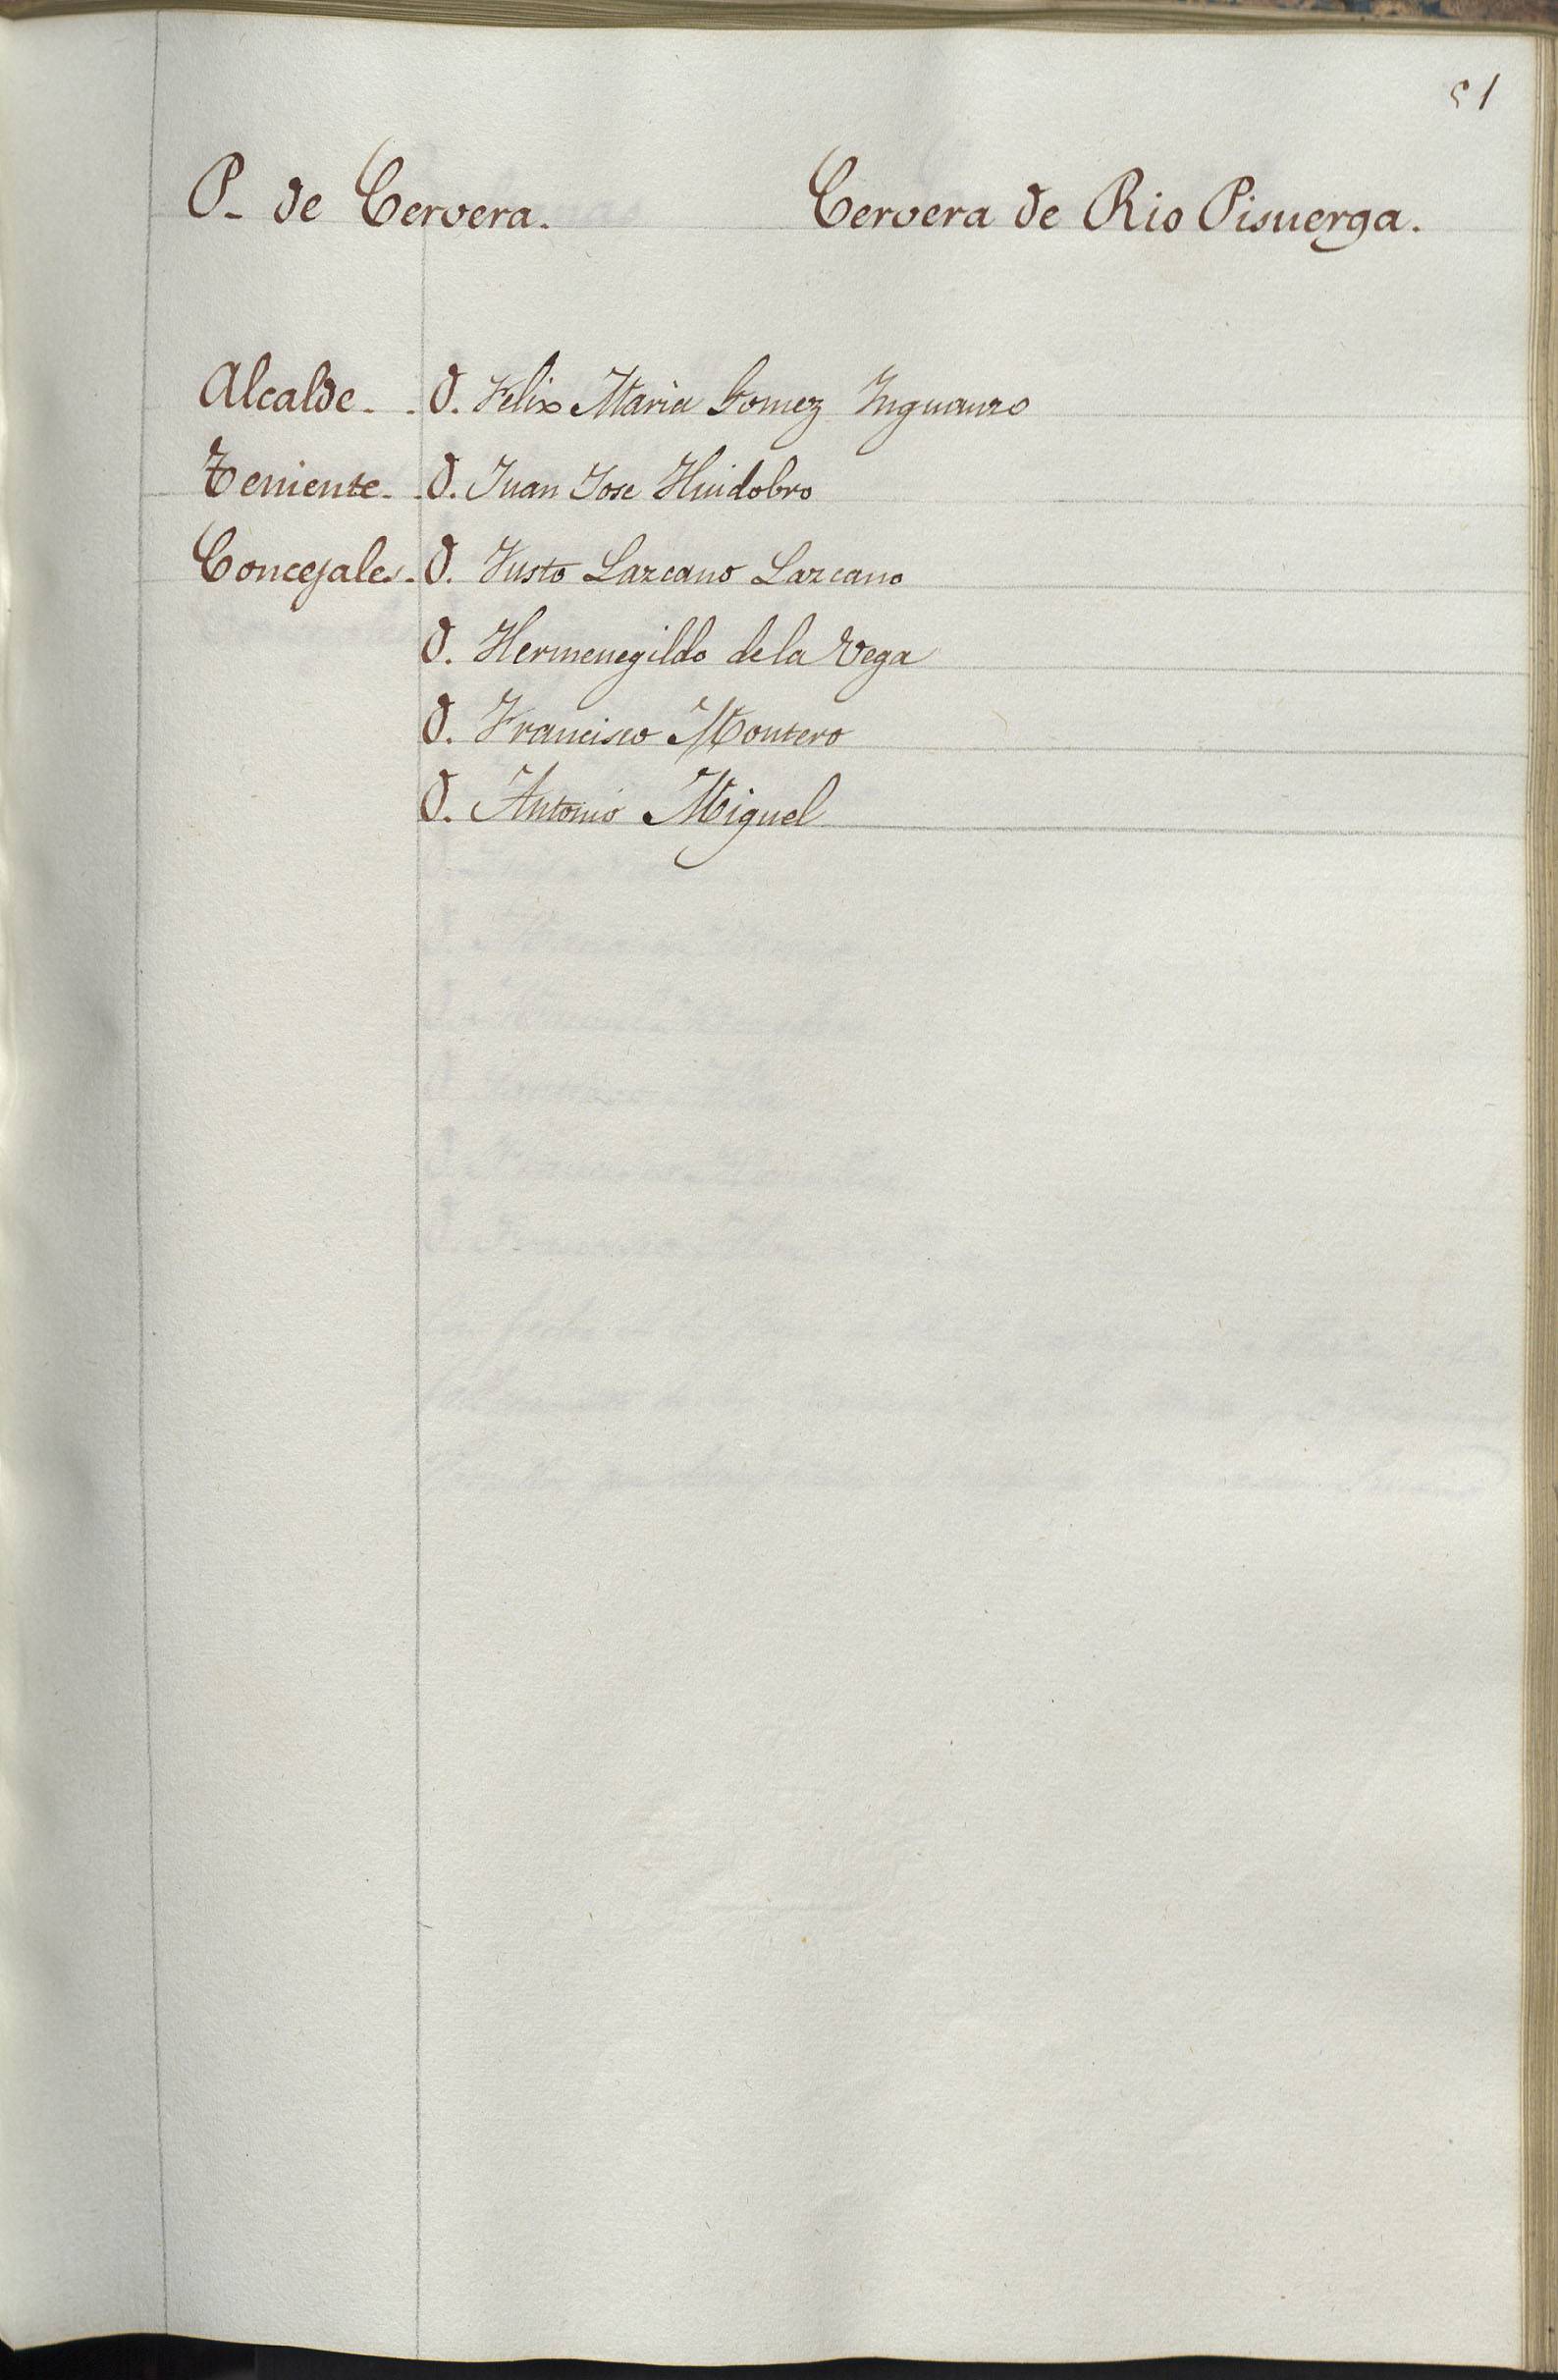 51
P. de Cervera. Cervera de Rio Pisuerga.
Alcalde. . D. Felix Maria Gomez Inguanzo
Teniente. . D. Juan Jose Huidobro
Concejales. D. Justo Lazcano Lazcano
D. Hermenegildo de la Vega
D. Francisco Montero
D. Antonio Miguel